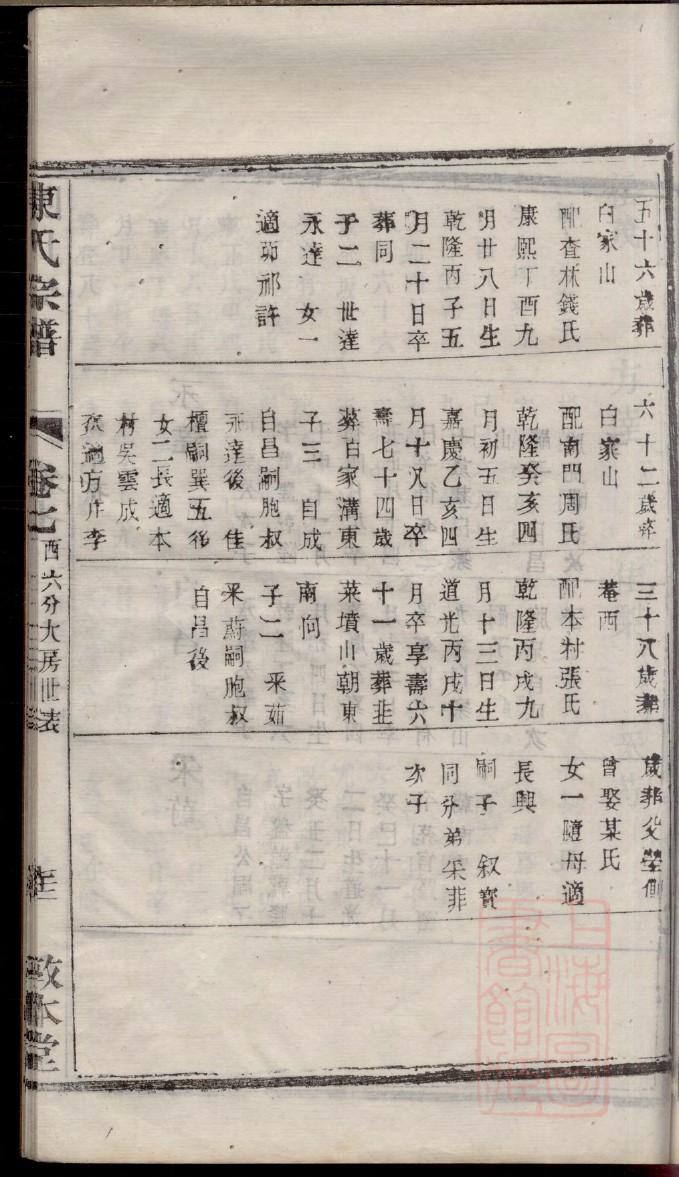 五十六歲葬
白家山
配査林錢氏
康熙丁酉九
月廿八日生
乾隆丙子五
月二十日卒
葬同
子二 世達
永達 女一
適茆祁許
六十二歲葬
白家山
配南門周氏
乾隆癸亥四
月初五日生
嘉慶乙亥四
月十八日卒
壽七十四歲
葬白家溝東
子三 自成
自昌嗣胞叔
永達後 佳
檀嗣巽五後
女二長適本
村吳雲成
次適方庄李
三十八歲葬
菴西
配本村張氏
乾隆丙戌九
月十三日生
道光丙戌十
月卒享壽六
十一歲葬韭
菜墳山朝東
南向
子二 采茹
采蔚嗣胞叔
自昌後
歲葬父塋側
曾娶某氏
女一隨母適
長興
嗣子 叙寶
同分弟采菲
次子
陳氏宗譜
卷七
西六分大房世表
敦本堂
上海圖書館藏